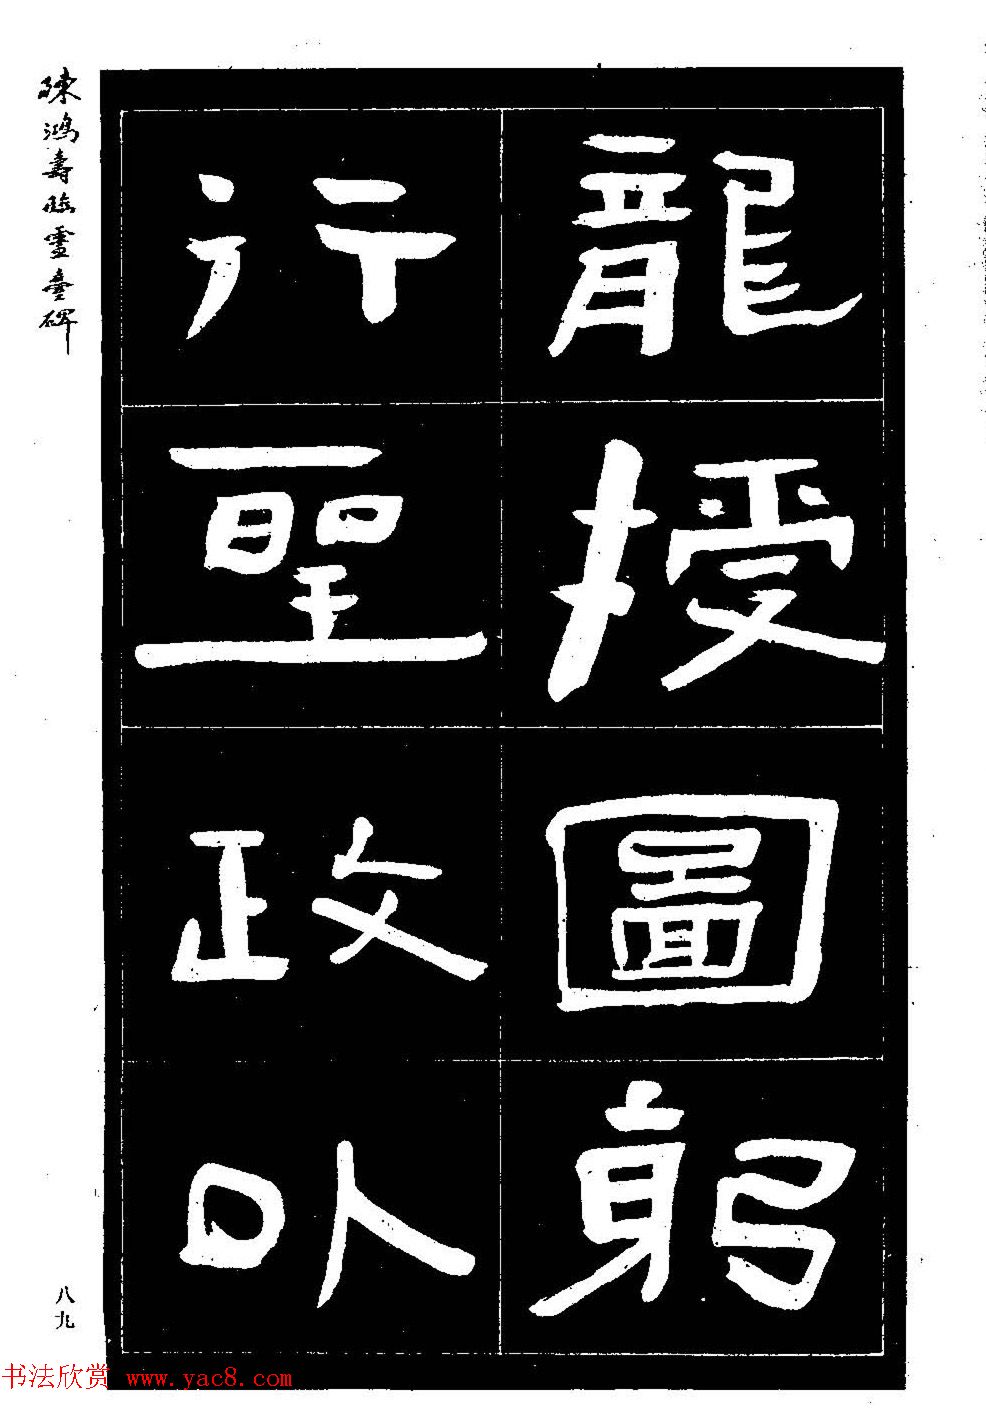 龍授圖躬
行聖政以
陳鴻壽臨靈臺碑
八九
书法欣赏 www.yac8.com